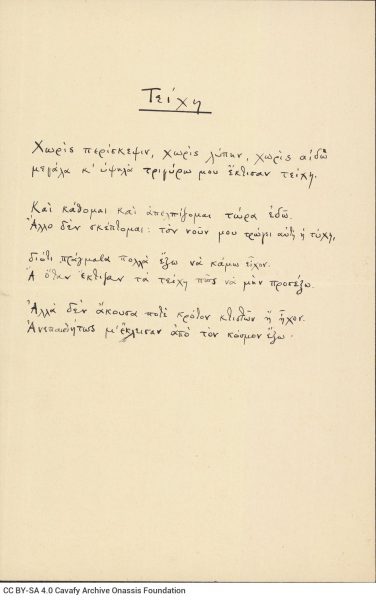 Τείχη
Χωρὶς περίσκεψιν, χωρὶς λύπην, χωρὶς αἰδῶ
μεγάλα κ' ὑψηλὰ τριγύρω μου ἔκτισαν τείχη.
Καὶ κάθομαι καὶ ἀπελπίζομαι τώρα ἐδῶ.
Ἄλλο δὲν σκέπτομαι: τὸν νοῦν μου τρώγει αὐτὴ ἡ τύχη,
διότι πράγματα πολλὰ ἔξω νὰ κάμω εἶχον.
Ἆ ὅταν ἔκτιζαν τὰ τείχη πῶς νὰ μὴν προσέξω.
Ἀλλὰ δὲν ἄκουσα ποτὲ κρότον κτιστῶν ἢ ἦχον.
Ἀνεπαισθήτως μ' ἔκλεισαν ἀπὸ τὸν κόσμον ἔξω.
CC BY-SA 4.0 Cavafy Archive Onassis Foundation